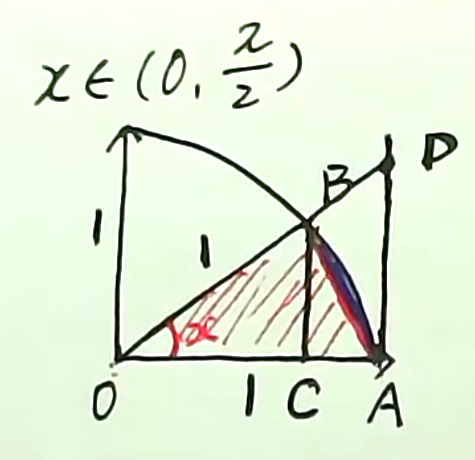 x∈(0,π/2)
D
B
1
1
x
O
1
C
A